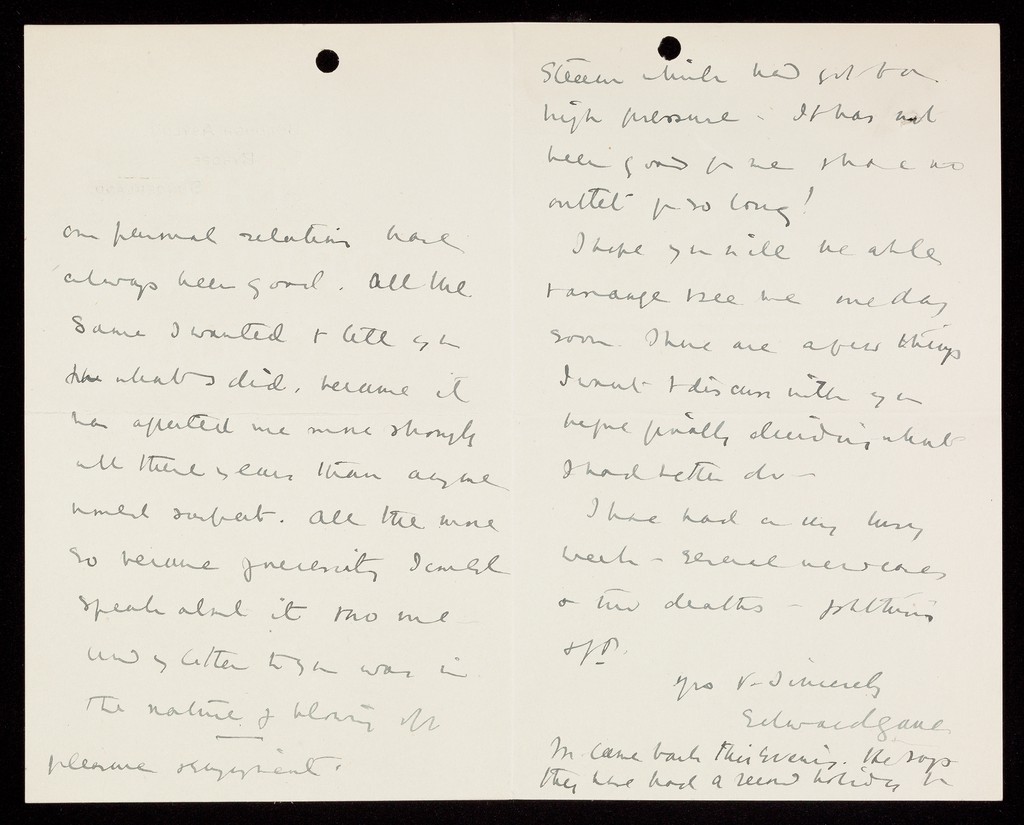 our personal relations have
always been good. All the
same I wanted to tell you
what I did, because it
has affected me more strongly
all these years than anyone
would suspect. All the more
so because of necessity I could
speak about it to no one
and my letter to you was in
the nature of blowing off
steam which had got to a
high pressure - It has not
been good for me to have no
outlet for so long!
I hope you will be able
to arrange to see me one day
soon. There are a few things
I want to discuss with you
before finally deciding what
I had better do -
I have had a very busy
week - several new cases
& two deaths -
yrs v. sincerely
came back this evening. He says
they have had a record holiday